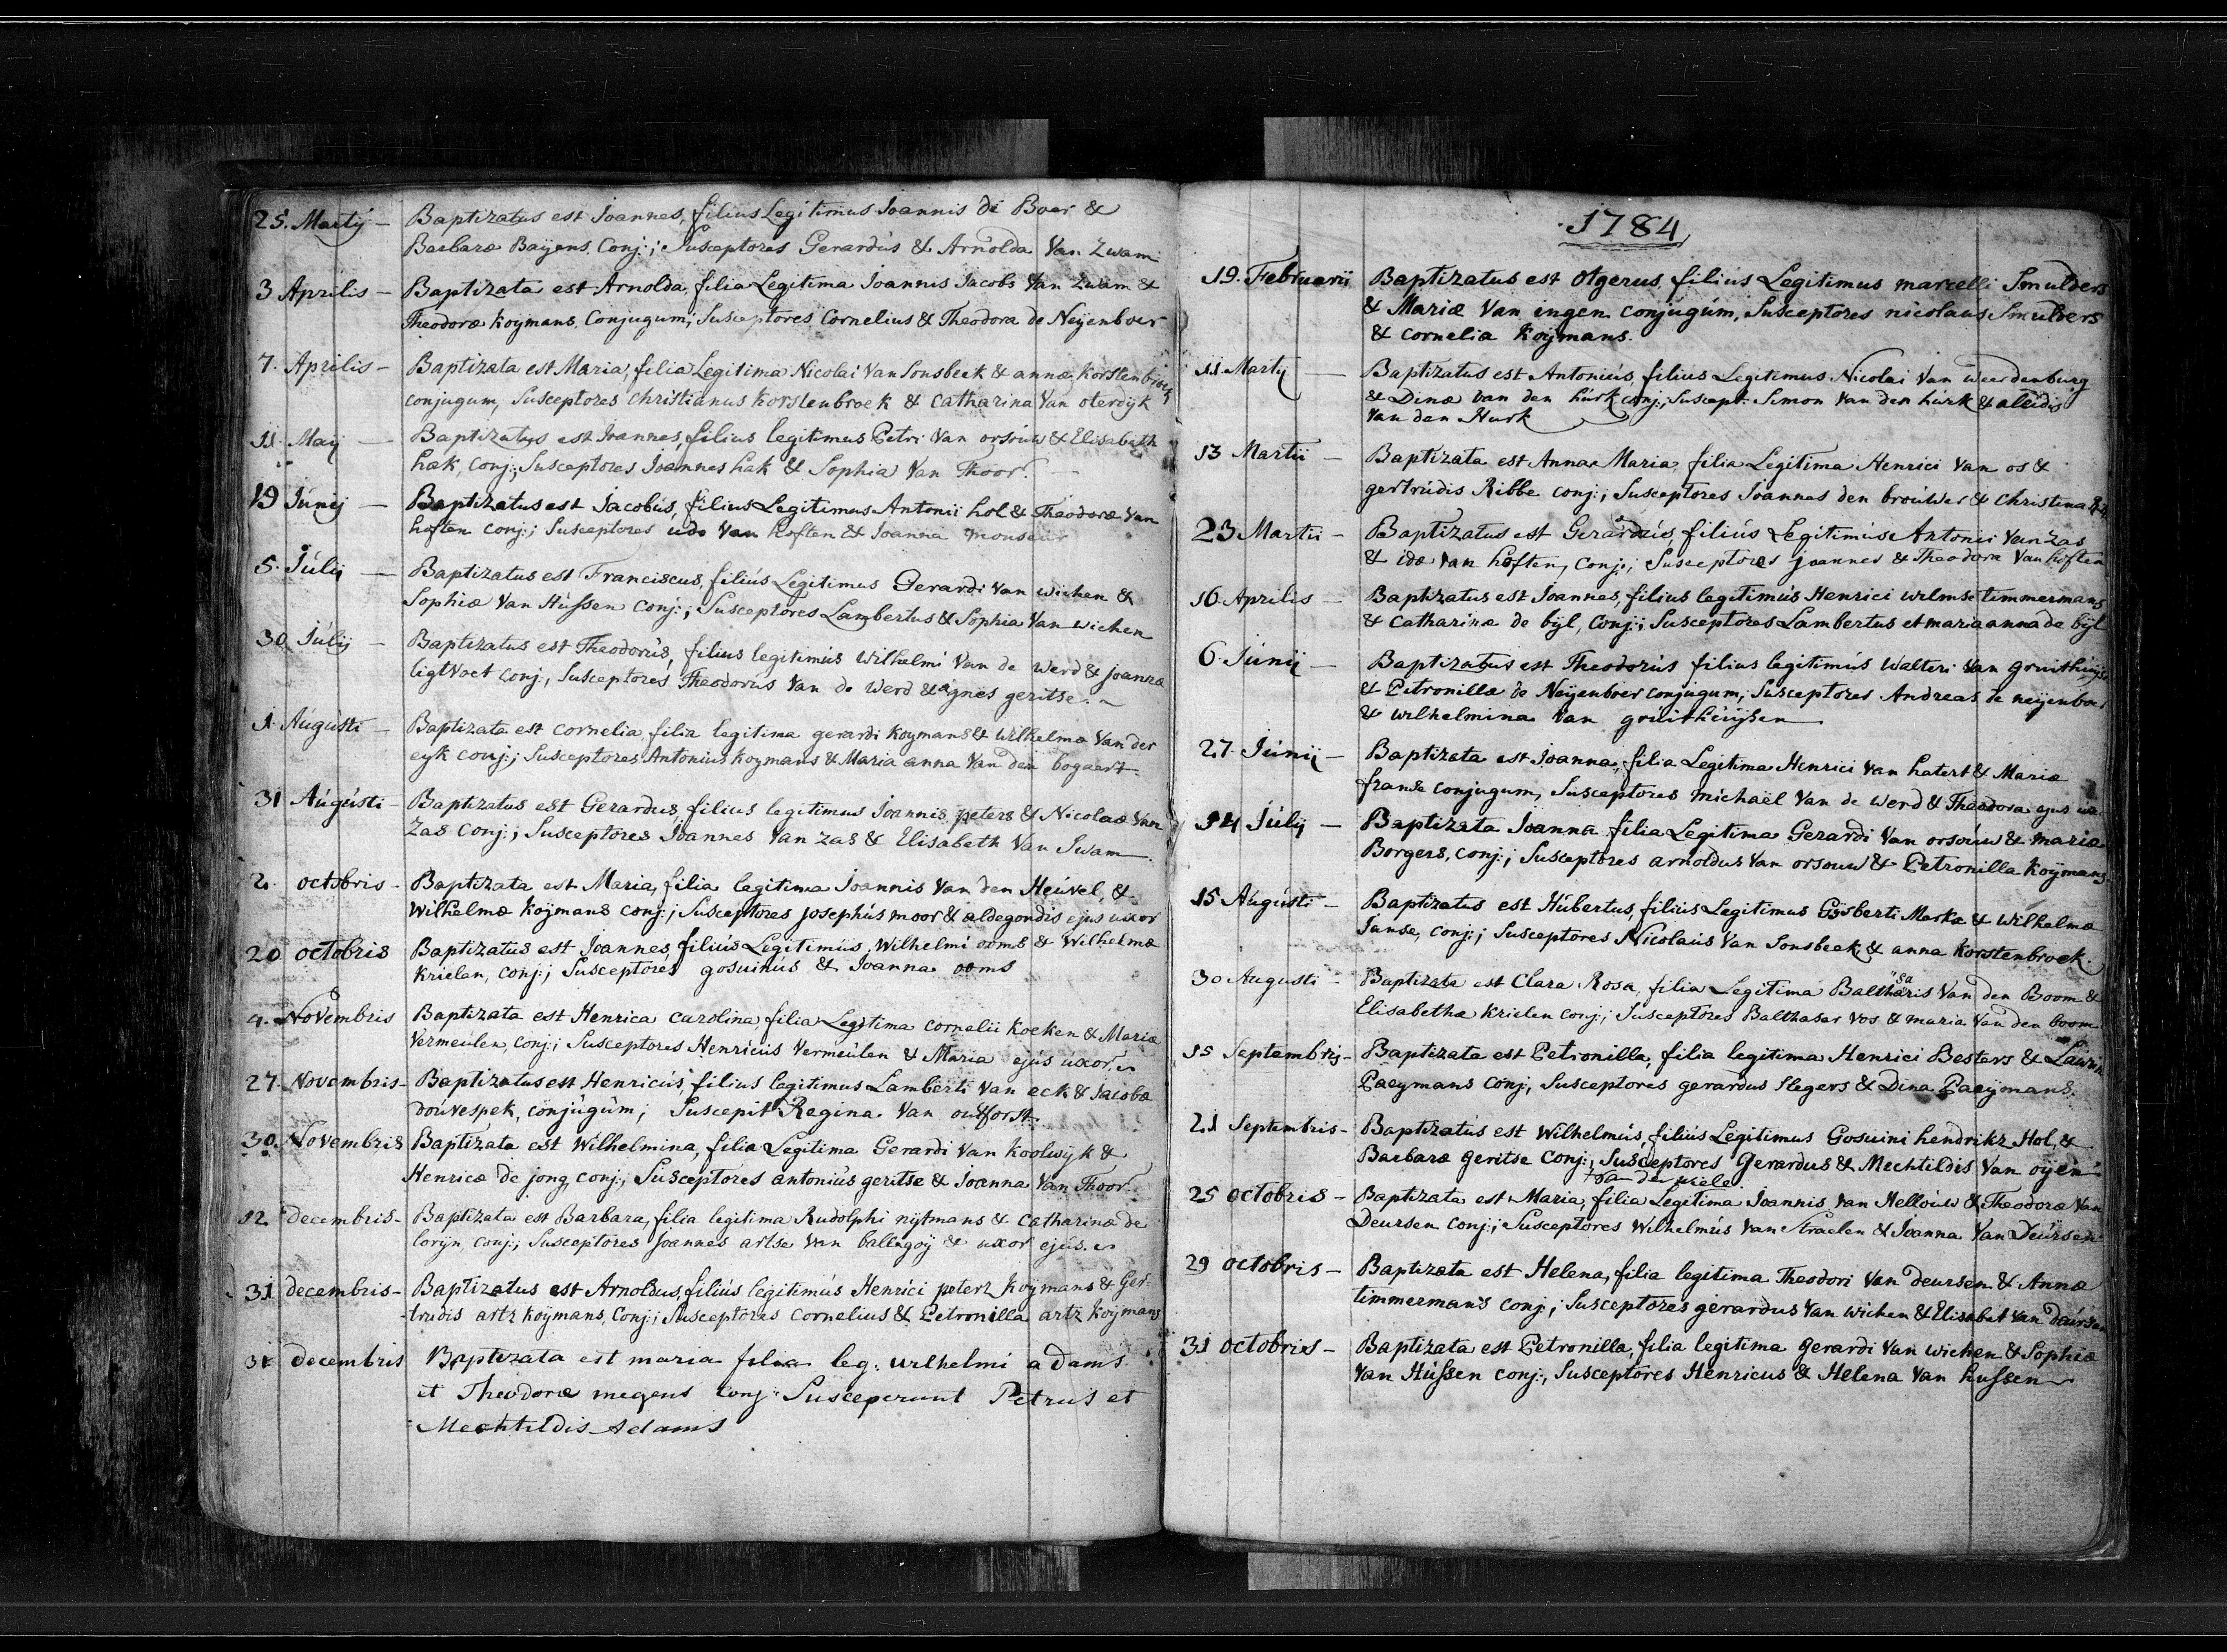 25. Martij – Baptizatus est Joannes, filius Legitimus Joannis de Boer &
Barbaræ Baijens, Conj:; Susceptores Gerardus & Arnolda Van Zwam
3 Aprilis – Baptizata est Arnolda, filia Legitima Joannis Jacobs Van Zwam &
Theodoræ koymans, Conjugum; Susceptores Cornelius & Theodora de Neijenboer
7. Aprilis – Baptizata est Maria, filia Legitima Nicolai Van Sonsbeek & annæ korstenbroek
conjugum, Susceptores christianus korstenbroek & catharina Van oterdijk
11. Maij – Baptizatus est Joannes, filius legitimus Petri Van orsouw & Elisabeth
hak, conj:; Susceptores Joannes hak & Sophia Van Thoor.
19 Junij – Baptizatus est Jacobús, filius Legitimus Antonii hol & Theodoræ Van
hoften conj:; Susceptores udo Van hoften & Joanna monseur
5. Júlij – Baptizatus est Franciscus, filiús Legitimus Gerardi Van wichen &
Sophiæ Van Hússen conj:; Susceptores Lambertus & Sophia Van wichen
30 Júlij – Baptizatus est Theodorús, filius legitimús Wilhelmi Van de Werd & joannæ
ligtvoet conj:, Susceptores Theodorus Van de Werd & agnes geritse.
1. Aúgústi – Baptizata est cornelia, filia legitima gerardi koymans & Wilhelmæ Van der
eyk conj:; Susceptores Antonius koymans & Maria anna Van den bogaert.
31 Aúgústi – Baptizatus est Gerardus, filius legitimus Joannis peters & Nicolaæ Van
Zas conj:; Susceptores Joannes Van Zas & Elisabeth Van Swam.
2. octobris – Baptizata est Maria, filia legitima Joannis Van den Heúvel, &
Wilhelmæ koijmans conj:; Susceptores josephús moor & aldegondis ejus uxor
20 octobris Baptizatus est Joannes, filiús Legitimús, Wilhelmi ooms & Wilhelmæ
krielen, conj:; Susceptores gosuinús & Joanna ooms
4. Novembris Baptizata est Henrica carolina, filia Legitima cornelii koeken & Mariæ
Vermeulen, conj:; Susceptores Henricús Vermeúlen & Maria ejus uxor.
27. Novembris – Baptizatus est Henricús, filius legitimus Lamberti Van eck & Jacobæ
doúvespek, conjúgúm; Suscepit Regina Van outforst.
30. Novembris Baptizata est Wilhelmina, filia Legitima Gerardi Van koolwijk &
Henricæ de jong, conj:, Susceptores antoniús geritse & Joanna Van Thoor.
12 decembris – Baptizata est Barbara, filia legitima Rudolphi nijtmans & catharinæ de
lorijn, conj:; Susceptores joannes artse Van ballegoij & uxor ejús.
31 decembris – Baptizatus est Arnoldus, filiús legitimús Henrici peterz koymans & Ger-
-trudis artz koijmans, Conj:; Susceptores cornelius & Petronilla artz koymans
31 decembris Baptizata est maria filia leg. wilhelmi adams
et Theodoræ megens conj: Susceperunt Petrus et
Mechtildis Adams
1784
19. Februarii Baptizatus est Otgerus, filiús Legitimus marcelli Smulders
& Mariæ Van ingen conjúgúm, Susceptores nicolaus Smulders
& cornelia koijmans.
11. Martij – Baptizatus est Antoniús, filius Legitimus Nicolai Van Weerdenburg
& Dinæ van den húrk conj:, Suscept: Simon Van den húrk & aleidis
Van den Hurk
13 Martii – Baptizata est Anna Maria, filia Legitima Henrici Van os &
gertrudis Ribbe conj:; Susceptores Joannes den broúwer & Christina
23 Martii – Baptizatus est Gerardús, filiús Legitimús Antonii Van Zas
& idæ van hoften, conj:; Susceptores joannes & Theodora Van hoften
16 Aprilis – Baptizatus est Joannes, filius legitimús Henrici wilmse timmermans
& catharinæ de bijl, conj:; Susceptores Lambertus et maria anna de bijl
6 Júnij – Baptizatus est Theodorús filius legitimús Walteri Van gruithúijsen
& Petronillæ de Neijenboer conjugum, Susceptores Andreas de neijenboer
& wilhelmina Van grúithúijsen
27 Júnij – Baptizata est Joanna, filia Legitima Henrici Van hatert & Mariæ
franse conjugum, Susceptores michaël Van de Werd & Theodora ejus ux
14 Júlij – Baptizata Joanna filia Legitima Gerardi Van orsoúw & mariæ
Borgers, conj:; Susceptores arnoldus Van orsouw & Petronilla koijmans.
15 Aúgústi – Baptizatus est Húbertus, filiús Legitimus Gijsberti Marke & Wilhelmæ
Janse, conj:; Susceptores Nicolaús Van Sonsbeek, & anna korstenbroek.
30 Augusti – Baptizata est Clara Rosa, filia Legitima Balthasaris Van den Boom &
Elisabethæ krielen conj:; Susceptores Balthasar Vos & maria Van den boom
15 Septembris – Baptizata est Petronilla, filia legitima Henrici Besters &
Paeymans conj:, Susceptores gerardus Slegers & Dina Paeijmans.
21 Septembris – Baptizatús est Wilhelmús, filiús Legitimus Gosuini hendrikz Hol, &
Barbaræ geritse conj:, Susceptores Gerardus & Mechtildis Van oijen
van der wiele
25 octobris – Baptizata est Maria, filia Legitima Joannis Van Hellouw & Theodoræ Van
Deursen conj:; Susceptores Wilhelmús Van Straelen & Joanna Van Deúrsen
29 octobris – Baptizata est Helena, filia legitima Theodori Van deursen & Annæ
timmermans conj:; Susceptores gerardus Van wichen & Elisabet Van deúrsen
31 octobris – Baptizata est Petronilla, filia legitima gerardi Van wichen & Sophiæ
Van Hússen conj:, Susceptores Henricus & Helena Van hussen